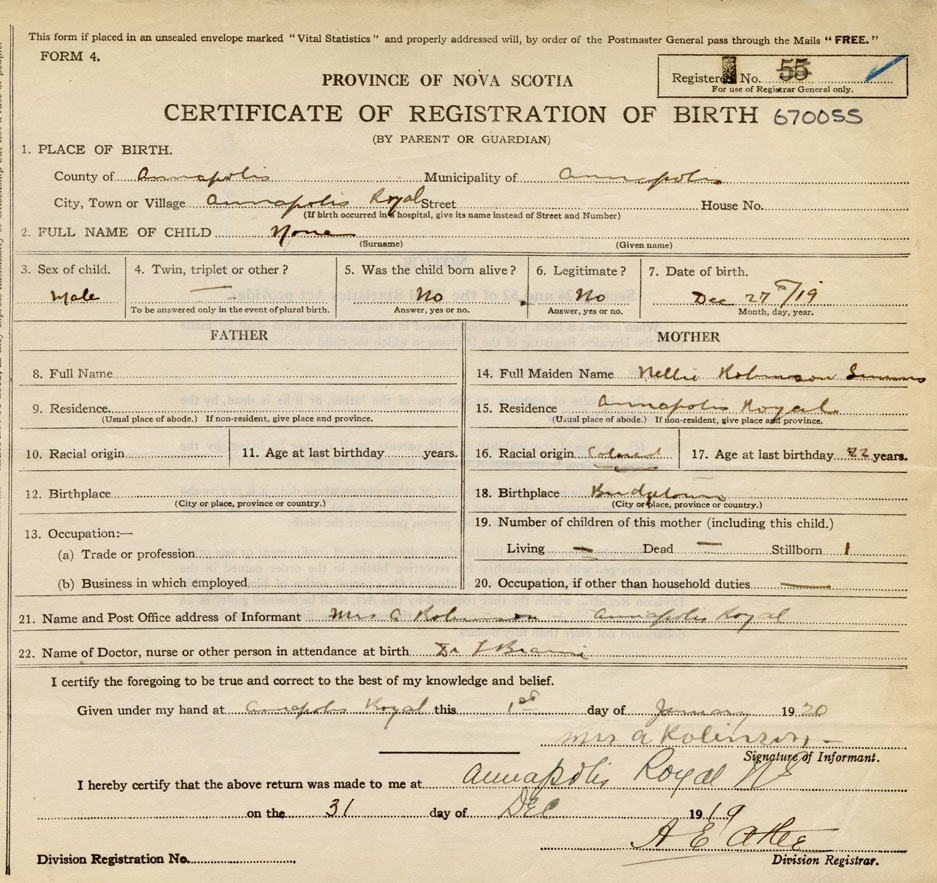 This form if placed in an unsealed envelope marked "Vital Statistics" and properly addressed will, by order of the Postmaster General pass through the Mails "FREE."
FORM 4.
Registered No. 55
For use of Registrar General only.
PROVINCE OF NOVA SCOTIA
CERTIFICATE OF REGISTRATION OF BIRTH 670055
(BY PARENT OR GUARDIAN)
1. PLACE OF BIRTH.
County of Annapolis Municipality of Annapolis
City, Town or Village Annapolis Royal Street House No.
(If birth occurred in a hospital, give its name instead of Street and Number)
2. FULL NAME OF CHILD None
(Surname) (Given name)
3. Sex of child. 4. Twin, triplet or other? 5. Was the child born alive? 6. Legitimate? 7. Date of birth.
Male — No No Dec 27th/19
To be answered only in the event of plural birth. Answer, yes or no. Answer, yes or no. Month, day, year.
FATHER MOTHER
8. Full Name 14. Full Maiden Name Nellie Robinson Simms
9. Residence 15. Residence Annapolis Royal
(Usual place of abode.) If non-resident, give place and province. (Usual place of abode.) If non-resident, give place and province.
10. Racial origin 11. Age at last birthday years. 16. Racial origin Colored 17. Age at last birthday 22 years.
12. Birthplace 18. Birthplace Bridgetown
(City or place, province or country.) (City or place, province or country.)
13. Occupation:— 19. Number of children of this mother (including this child.)
(a) Trade or profession Living — Dead — Stillborn 1
(b) Business in which employed 20. Occupation, if other than household duties. —
21. Name and Post Office address of Informant Mrs A Robinson - Annapolis Royal
22. Name of Doctor, nurse or other person in attendance at birth Dr
I certify the foregoing to be true and correct to the best of my knowledge and belief.
Given under my hand at Annapolis Royal this 1st day of January 1920
Mrs A Robinson
Signature of Informant.
I hereby certify that the above return was made to me at Annapolis Royal NS
on the 31 day of DEC 1919
A E
Division Registration No. Division Registrar.